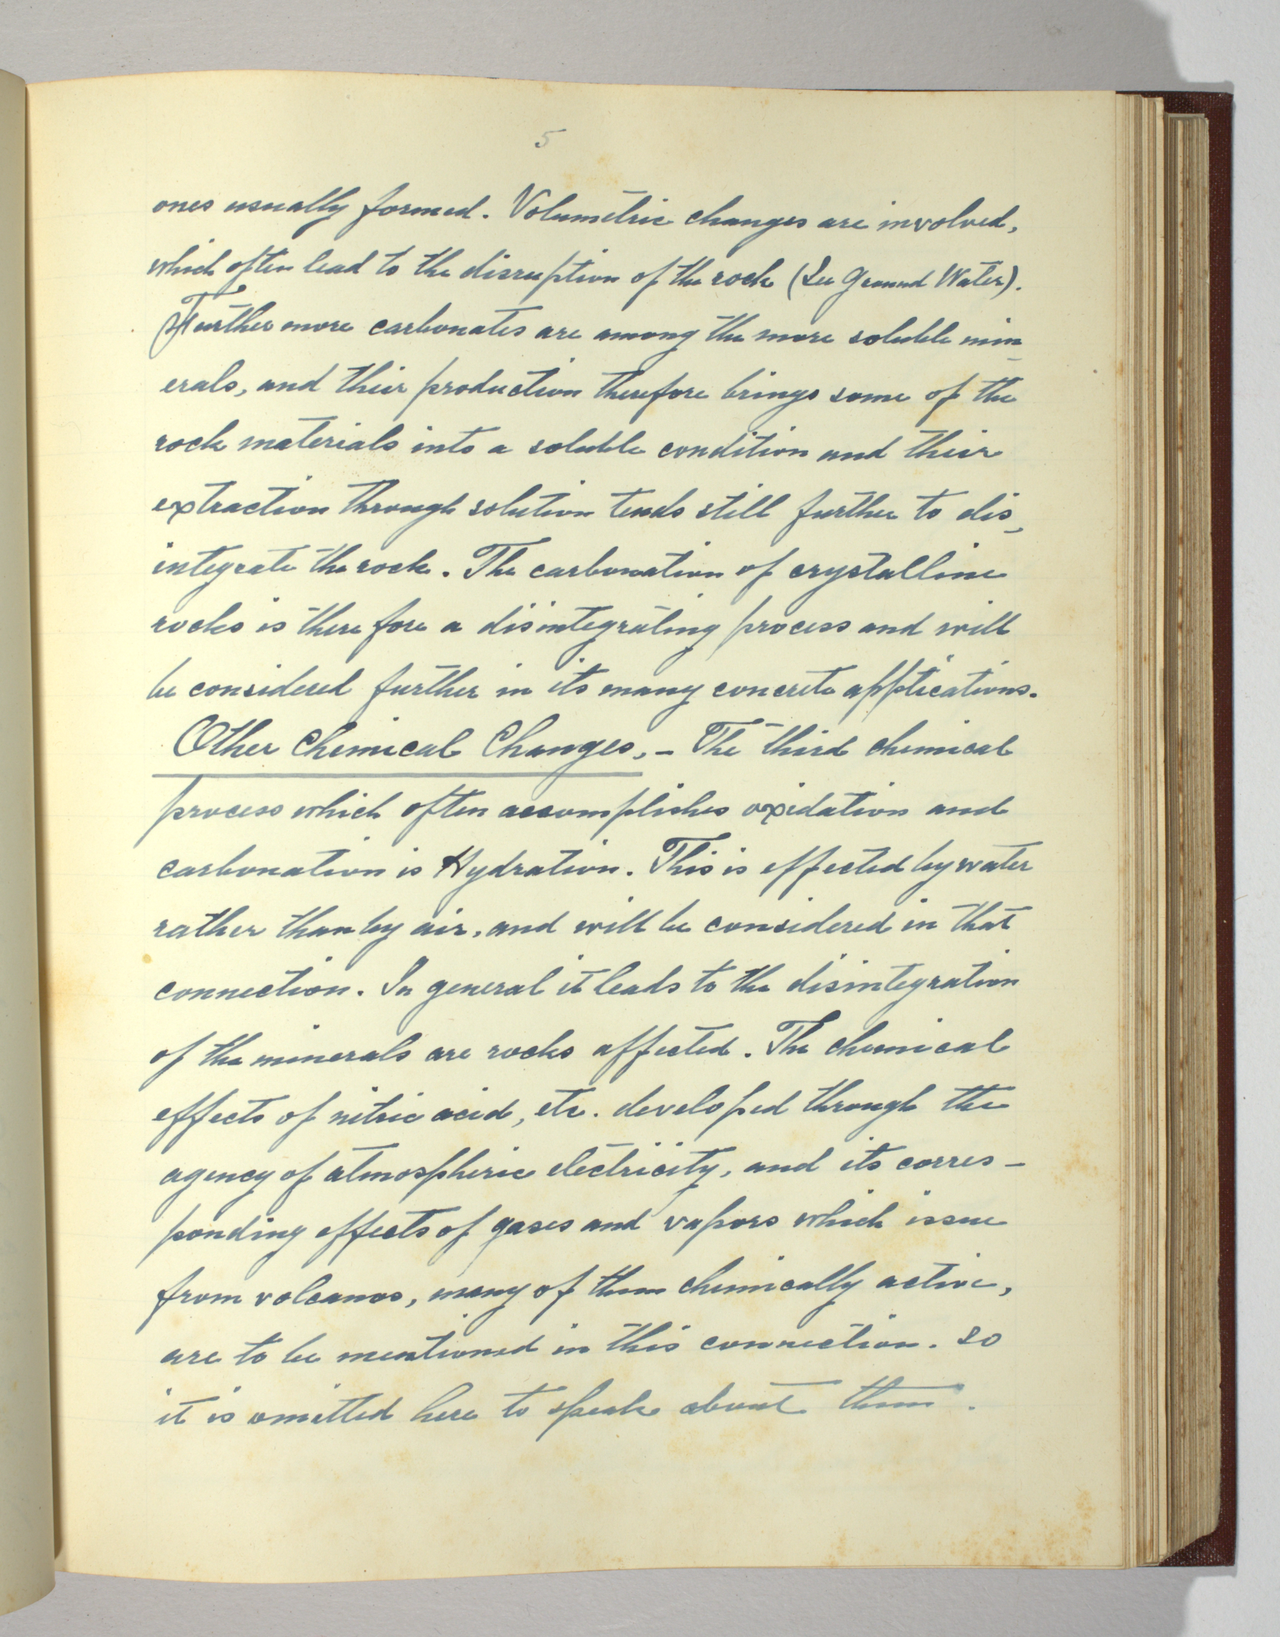 5
ones usually formed. Volumetric changes are involved,
which often lead to the disruption of the rock (See Ground Water).
Furthermore carbonates are among the more soluble min-
erals, and their production therefore brings some of the
rock materials into a soluble condition and their
extraction through solution tends still further to dis-
integrate the rock. The carbonation of crystalline
rocks is therefore a disintegrating process and will
be considered further in its many concrete applications.
Other Chemical Changes. - The third chemical
process which often accomplishes oxidation and
carbonation is Hydration. This is effected by water
rather than by air, and will be considered in that
connection. In general it leads to the disintegration
of the minerals are rocks affected. The chemical
effects of nitric acid, etc. developed through the
agency of atmospheric electricity, and its corres-
ponding effects of gases and vapors which issue
from volcanos, many of them chemically active,
are to be mentioned in this connection. so
it is omitted here to speak about them.